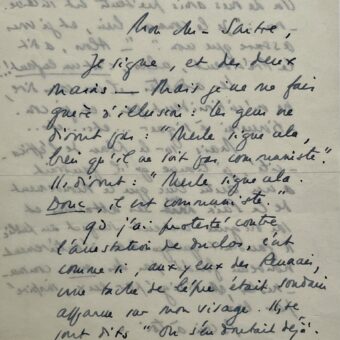 Mon cher Sartre,
Je signe, et des deux
mains — Mais je ne me fais
guère d'illusion : les gens ne
diront pas : "Merle signe cela,
bien qu'il ne soit pas communiste".
Ils diront : "Merle signe cela.
Donc, il est communiste."
Qd j'ai protesté contre
l'arrestation de Duclos, c'était
comme si, aux yeux des Rennais,
une tache de lèpre était soudain
apparue sur mon visage. Ils se
sont dits "On s'en doutait déjà".